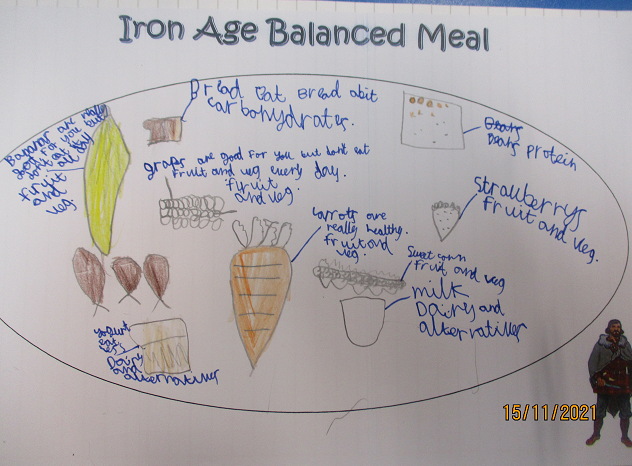 Iron Age Balanced Meal
Bananas are really
good for you but
dont eat
all day
fruit
and
veg.
Bread Eat Bread abit
carbohydrates.
graps are good for you but dont eat
fruit and veg every day.
fyruit
and veg.
carrots are
really healthy.
fruit and
veg.
Beans protein
Strauberrys
fruit and veg.
Sweet corn
fruit and veg
milk
Dairy and
alternatives
yogurt
eat
Dairy
and
alternatives
15/11/2021